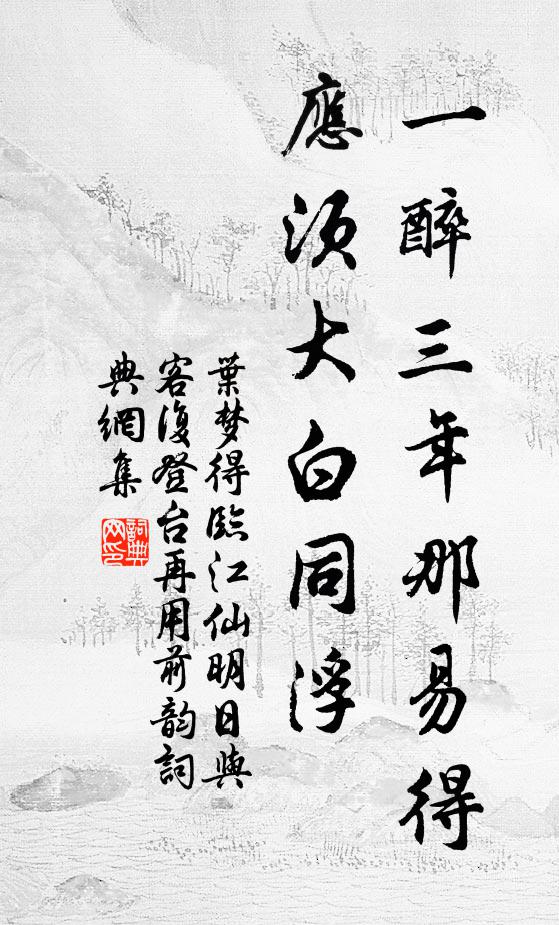 一醉三年那易得
應須大白同浮
葉梦得臨江仙明日與
客復登台再用前韵詞
典網集
詞典
网印